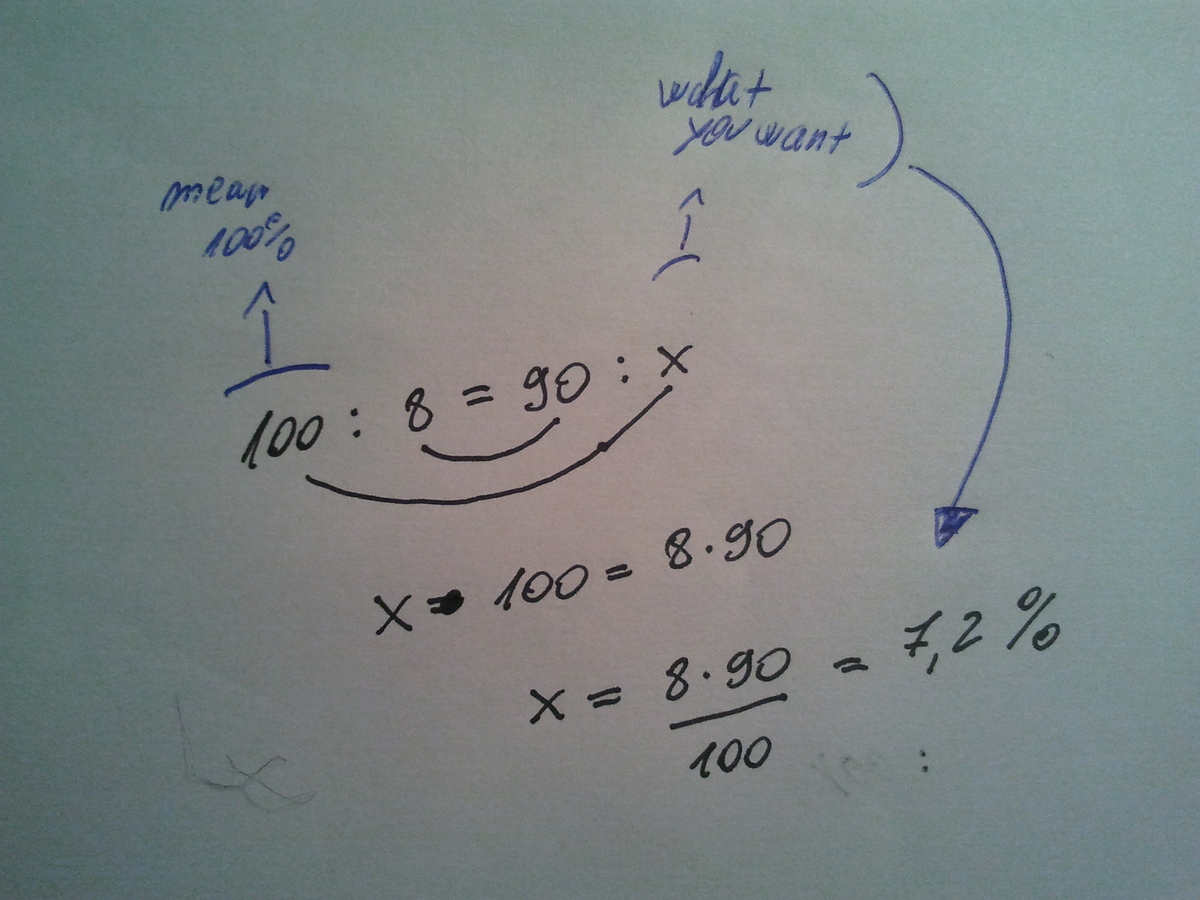 what
you want
mean
100%
100 : 8 = 90 : x
x • 100 = 8 · 90
x = 8 · 90 = 7,2 %
100
: